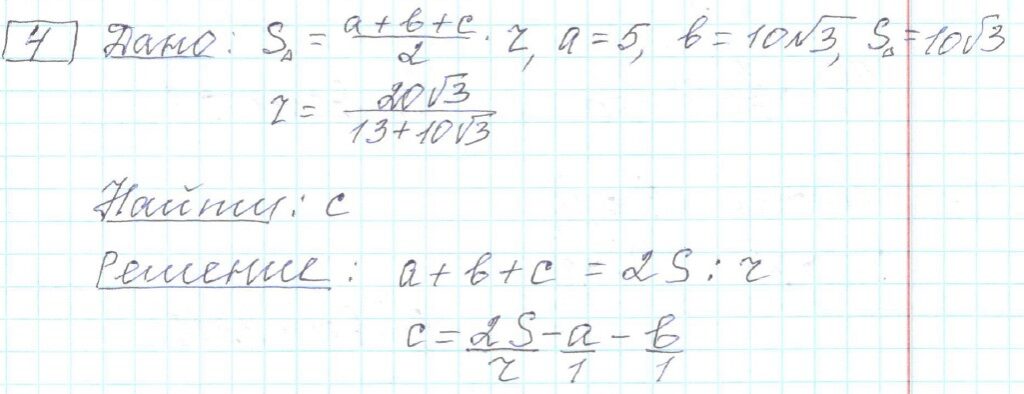 4 Дано: S△ = (a+b+c)/2 · r, a = 5, b = 10√3, S△ = 10√3
r = 20√3/(13+10√3)
Найти: c
Решение: a + b + c = 2S : r
c = 2S/r − a/1 − b/1